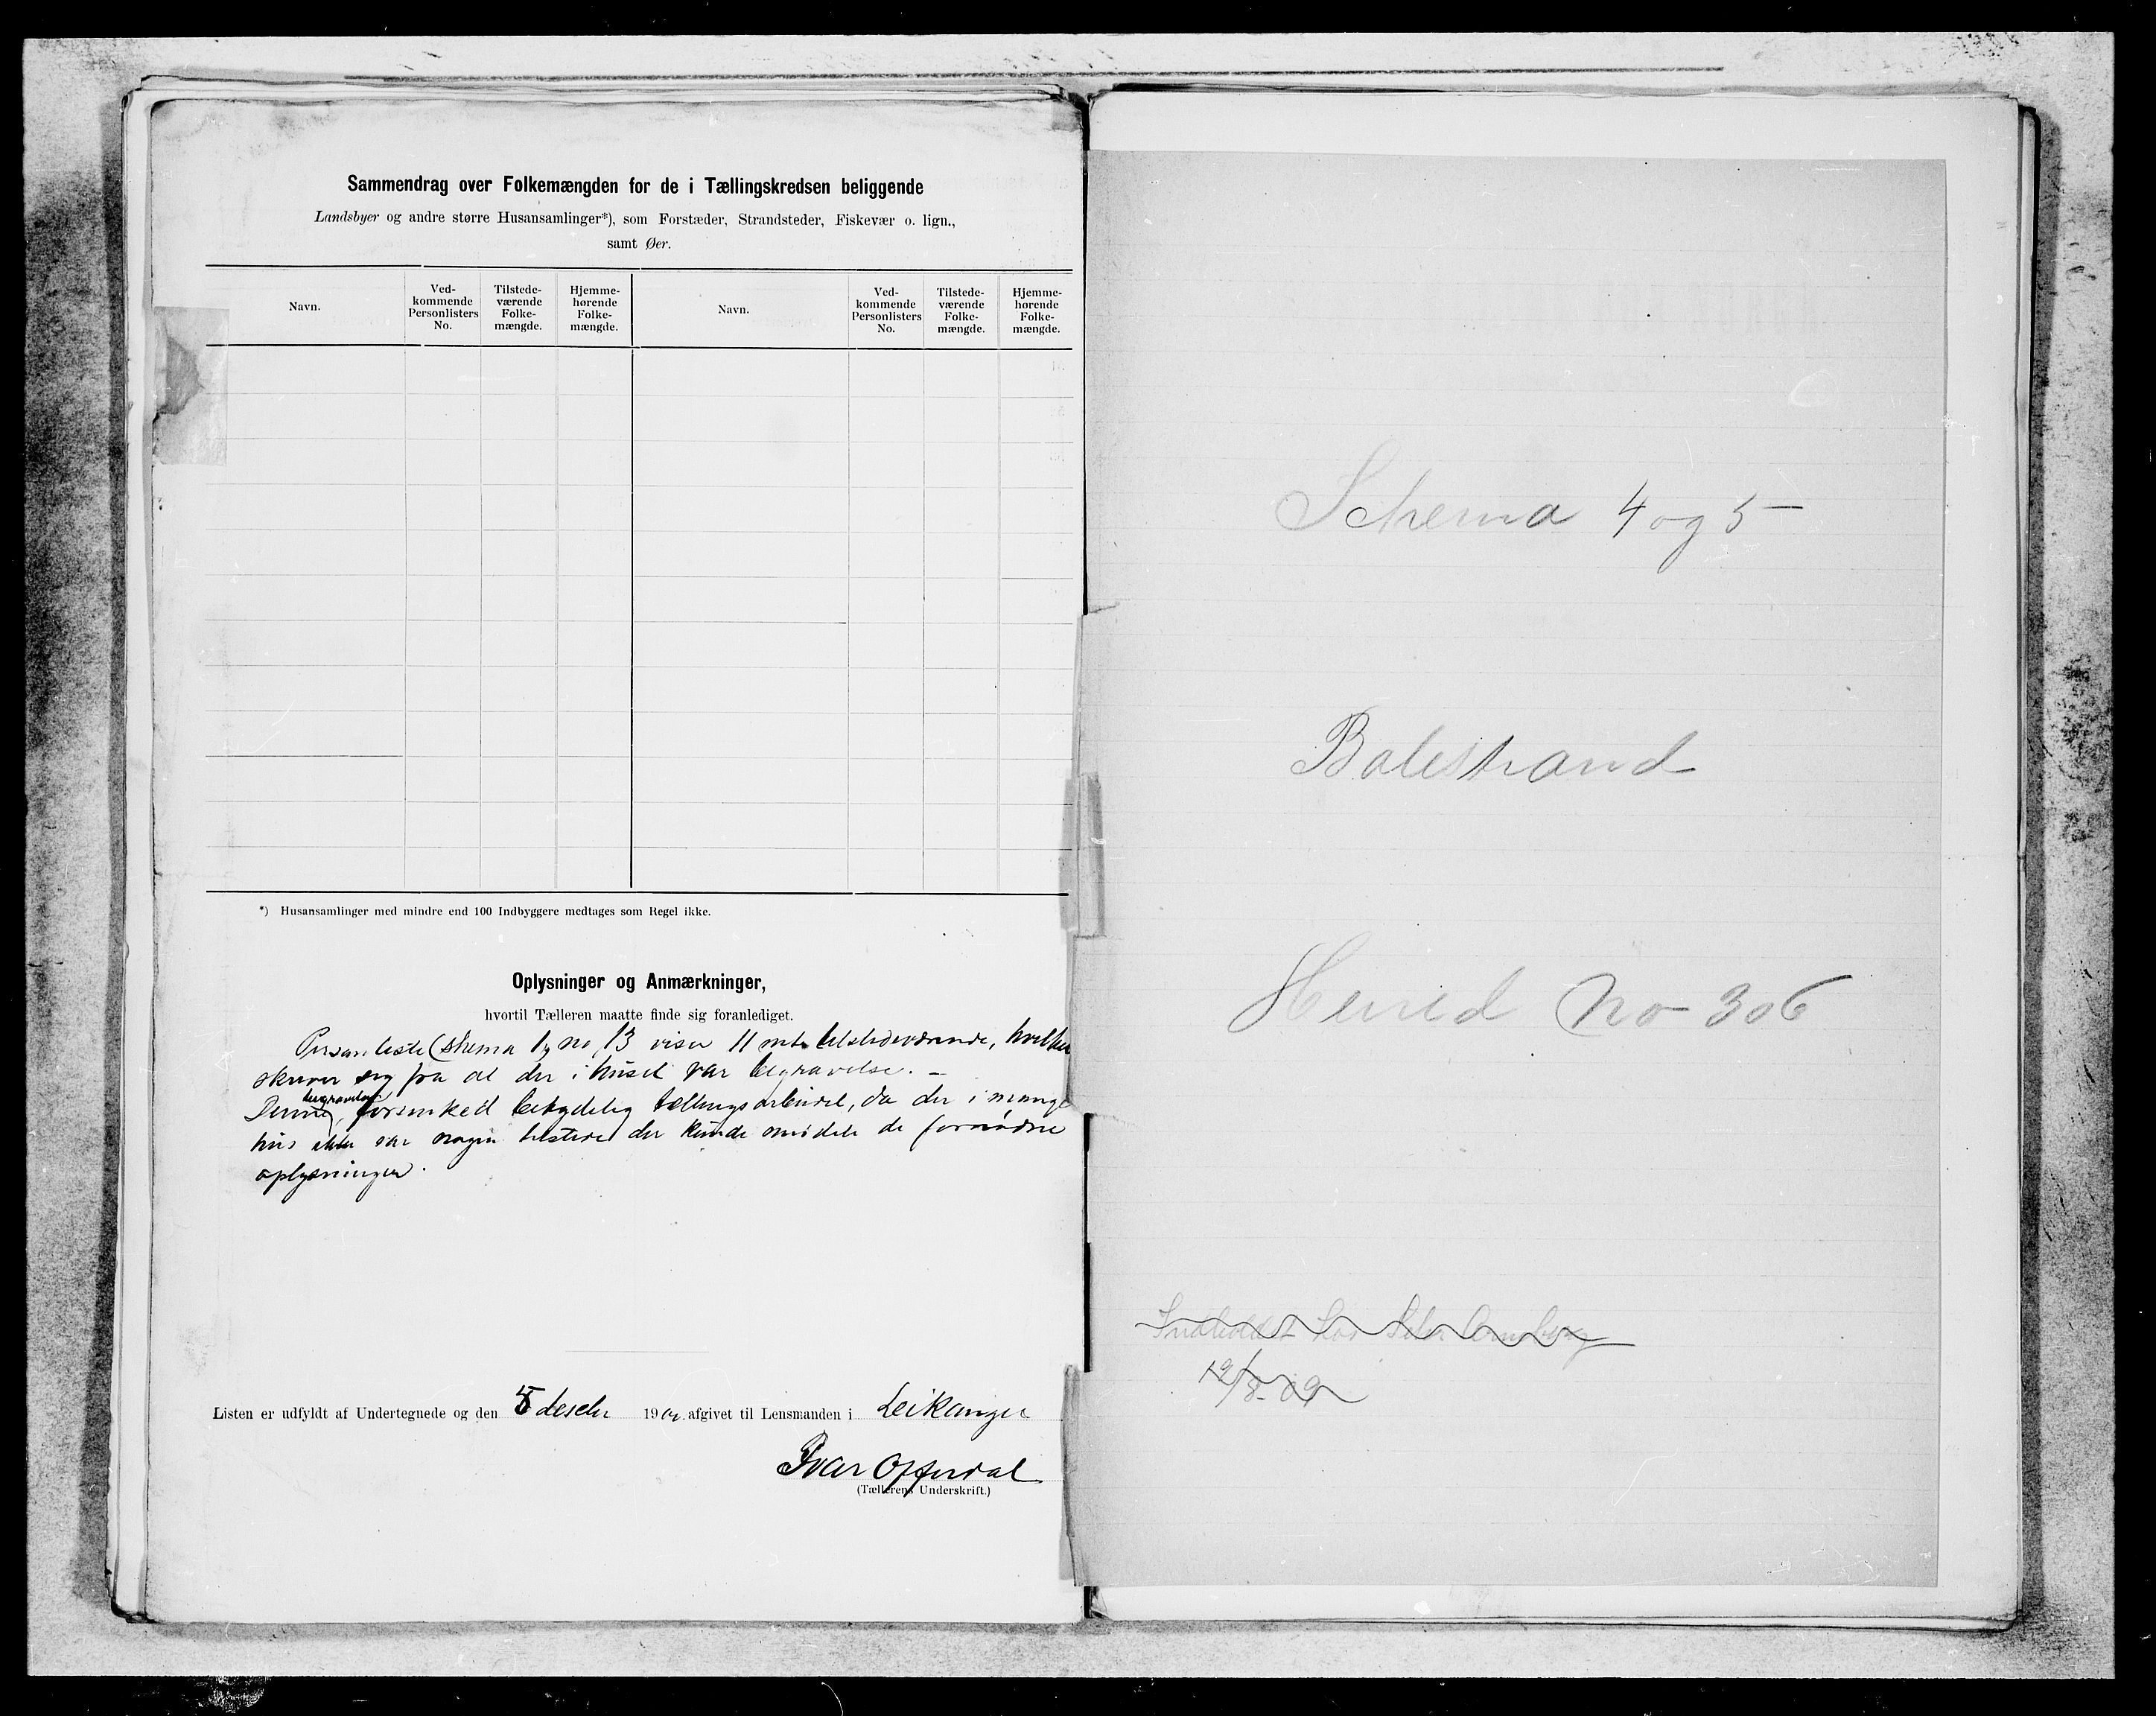 Sammendrag over Folkemængden for de i Tællingskredsen beliggende
Landsbyer og andre større Husansamlinger*), som Forstæder, Strandsteder, Fiskevær o. lign.,
samt Øer.
Navn.
Ved-
kommende
Personlisters
No.
Tilstede-
værende
Folke-
mængde.
Hjemme-
hørende
Folke-
mængde.
Navn.
Ved-
kommende
Personlisters
No.
Tilstede-
værende
Folke-
mængde.
Hjemme-
hørende
Folke-
mængde.
*) Husansamlinger med mindre end 100 Indbyggere medtages som Regel ikke.
Oplysninger og Anmærkninger,
hvortil Tælleren maatte finde sig foranlediget.
Personliste (skema 1) no 13 viser 11 tilstedeværende, hvilket
skriver sig fra at der i huset var begravelse. -
begravelse
Denne, forsinked betydelig tellingsarbeidet, da der i mange
hus ikke var nogen tilstede der kunde meddele de fornødne
oplysninger.
Listen er udfyldt af Undertegnede og den 5 desebr 190 afgivet til Lensmanden i Leikanger
Ivar Offerdal
(Tællerens Underskrift.)
Schema 4 og 5
Balestrand
Herred No 306
12/8-09